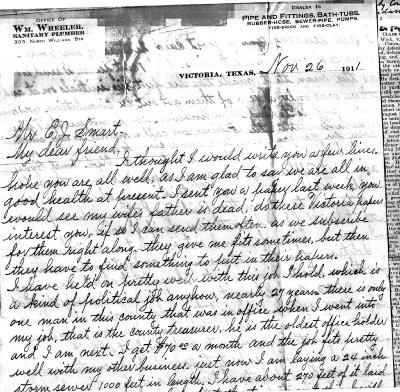 OFFICE OF
WM. WHEELER,
SANITARY PLUMBER
305 NORTH WILLIAM STR.
DEALER IN
PIPE AND FITTINGS, BATH-TUBS,
RUBBER-HOSE, SEWER-PIPE, PUMPS,
FIRE-BRICK AND FIRE-CLAY.
VICTORIA, TEXAS, Nov 26 1911
Mr E. J. Smart.
My dear friend,
I thought I would write you a few lines.
hope you are all well, as I am glad to say we are all in
good health at present. I sent you a paper last week, you
would see my wifes father is dead, do these Victoria papers
interest you, if so I can send them often. as we subscribe
for them right along. they give me fits sometimes, but then
they have to find something to put in their papers.
I have held on pretty well with this job I hold, which is
a kind of political job anyhow, nearly 27 years there is only
one man in this county that was in office when I went into
my job, that is the county treasurer. he is the oldest office holder
and I am next. I get $70.00 a month and the job fits pretty
well with my other business. just now I am laying a 24 inch
storm sewer 1000 feet in length, I have about 270 feet of it laid